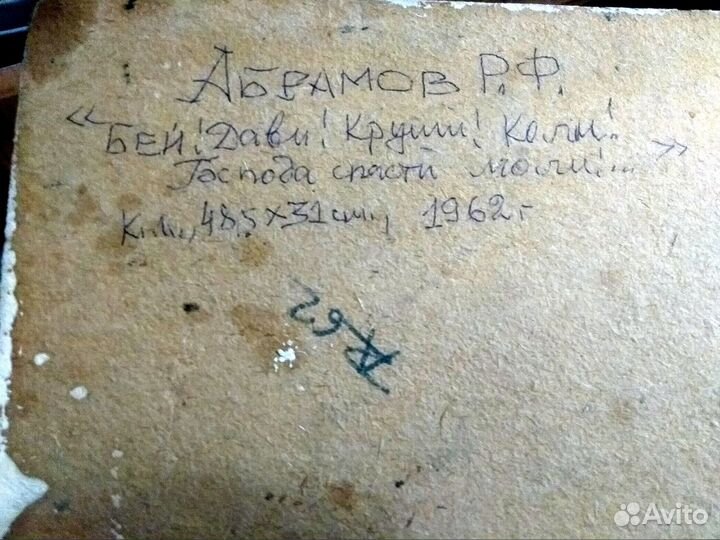 АБРАМОВ Р.Ф.
«БЕЙ! Дави! Круши! Коли!
Господа спасти моли!... »
К.,М., 48,5 х 31 см., 1962 г
62
Avito